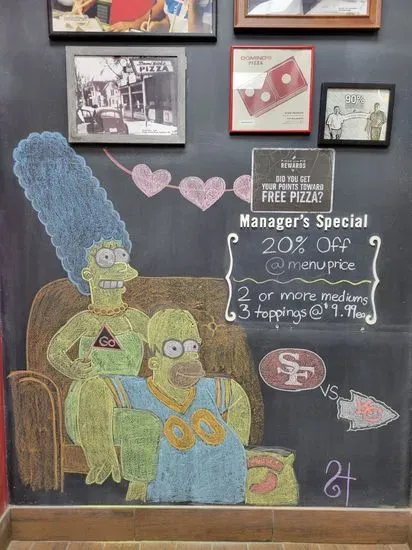 PIZZA
DOMINO'S
PIZZA
90%
REWARDS
DID YOU GET
YOUR POINTS TOWARD
FREE PIZZA?
Manager's Special
20% Off
@ menu price
2 or more mediums
3 toppings @ $9.99 ea
Go
00
SF
VS
KC
24